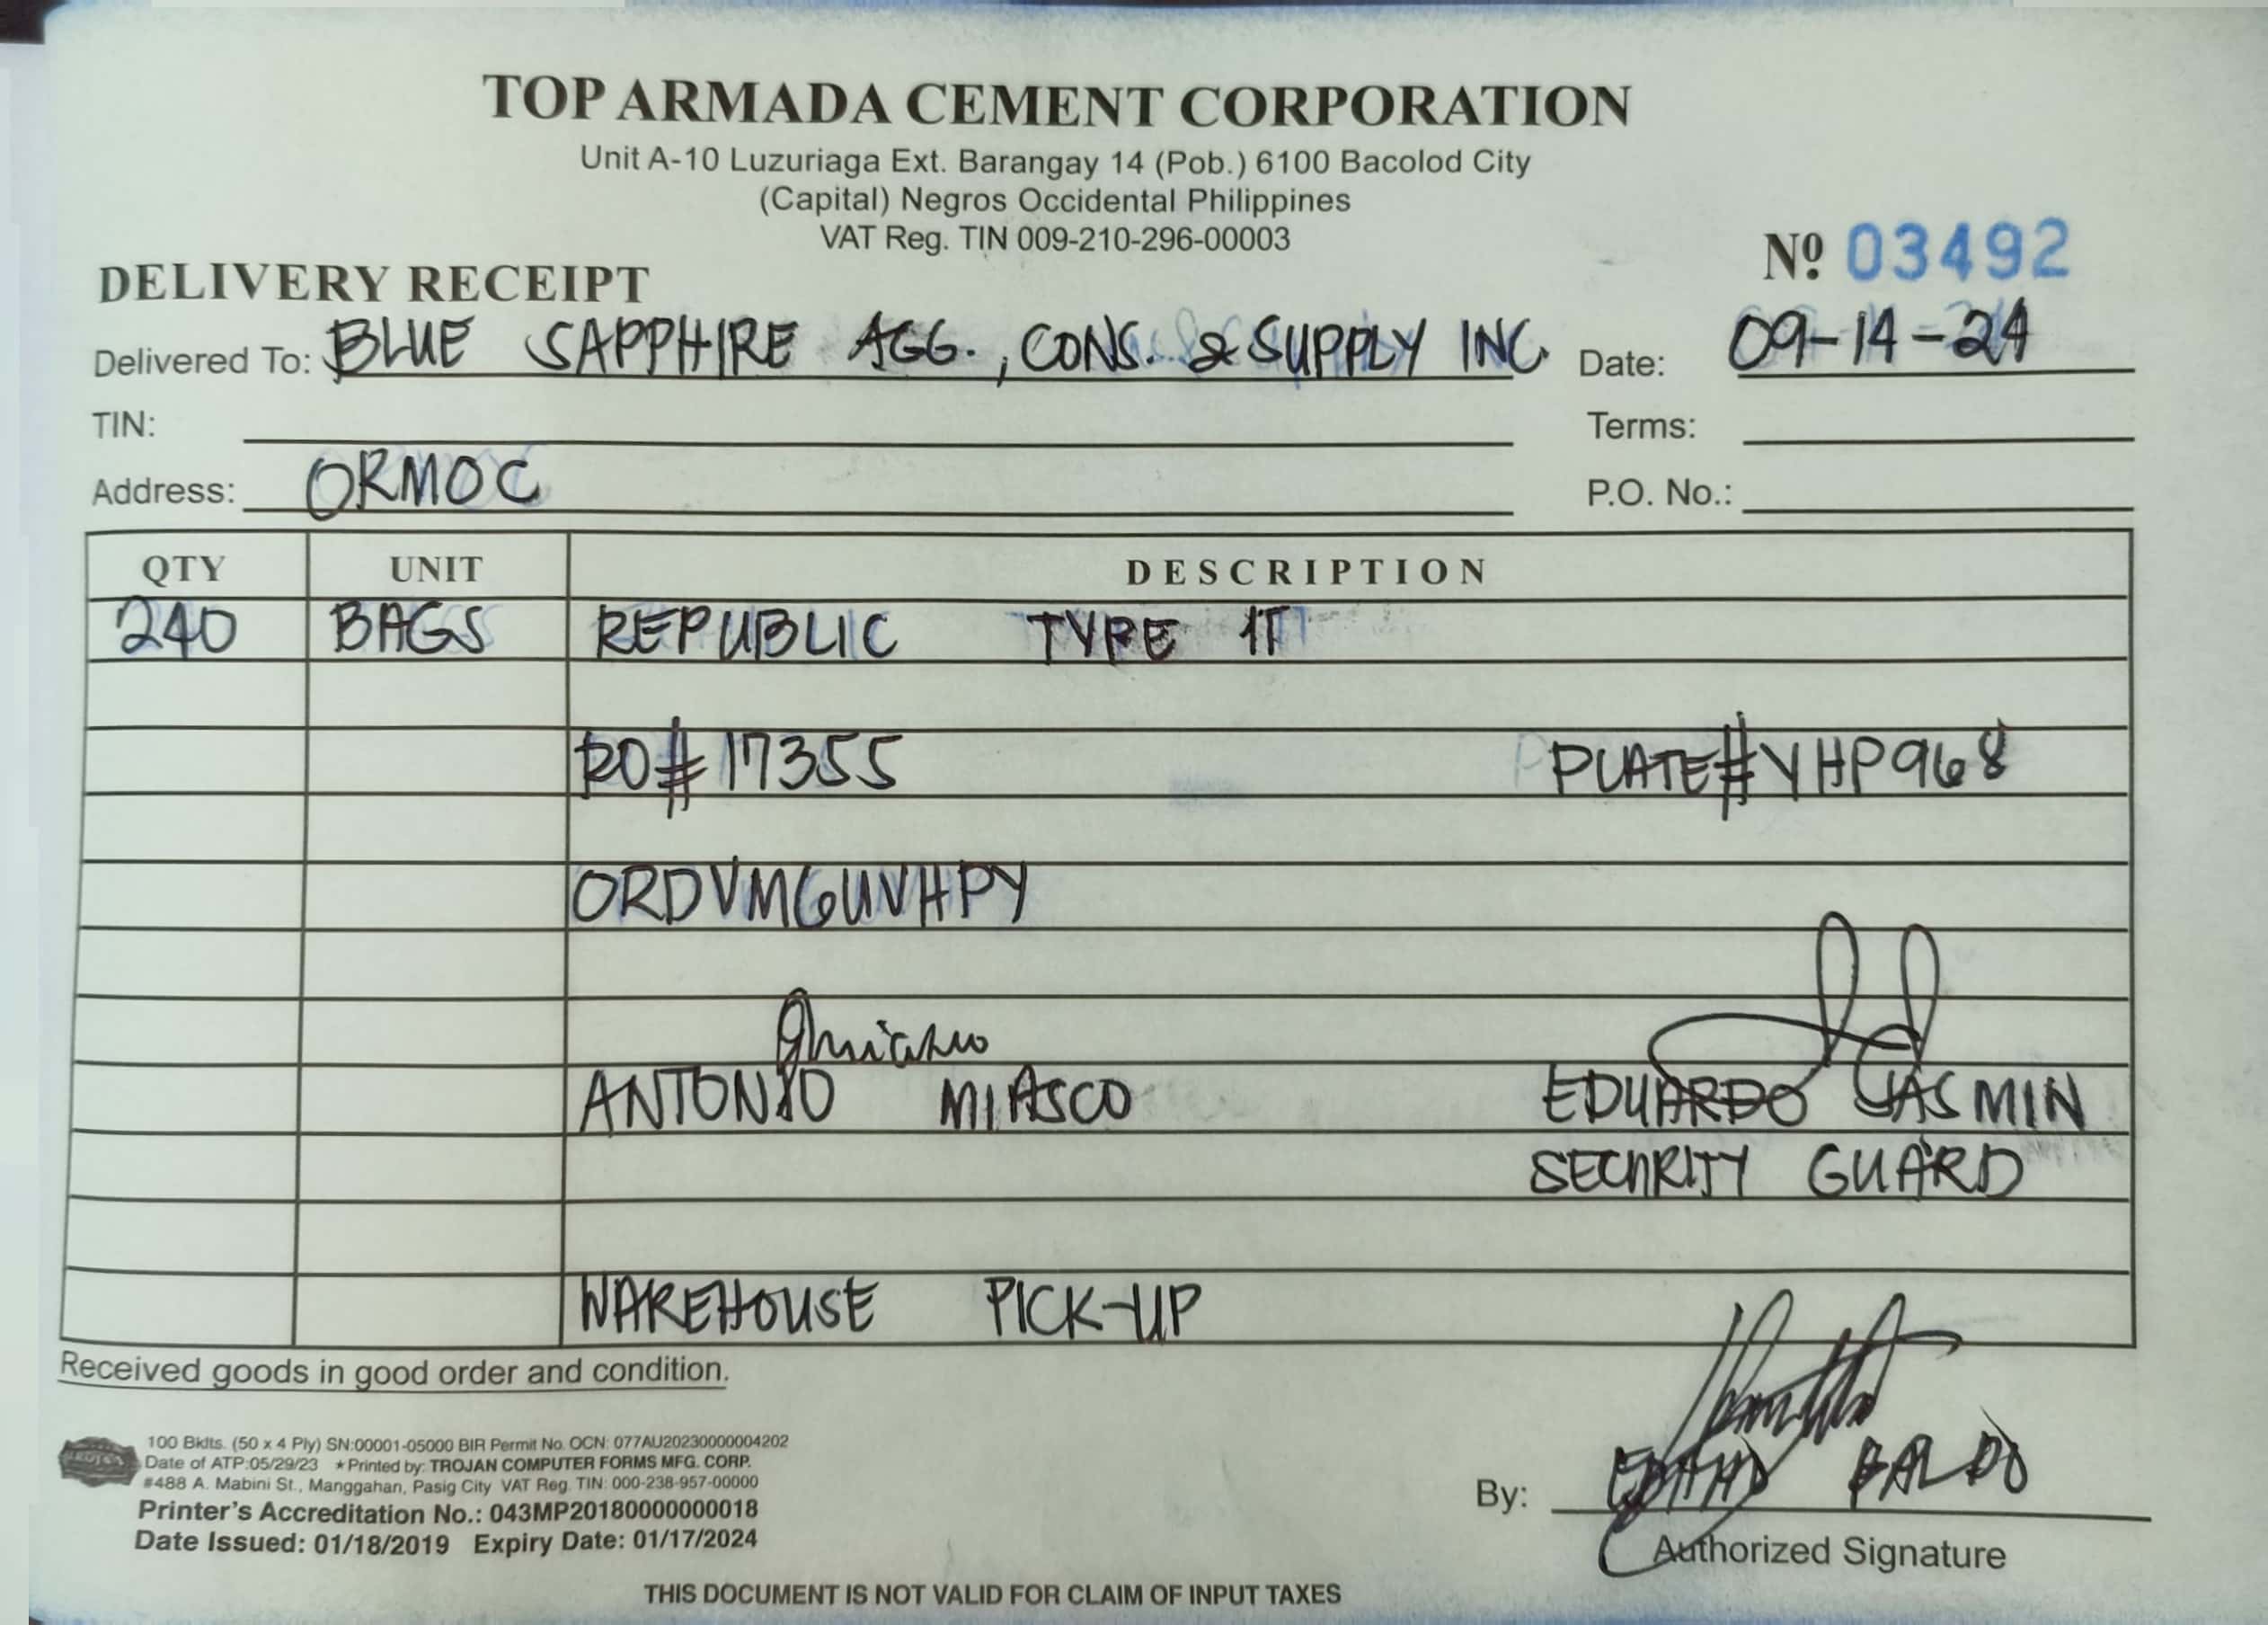 TOP ARMADA CEMENT CORPORATION
Unit A-10 Luzuriaga Ext. Barangay 14 (Pob.) 6100 Bacolod City
(Capital) Negros Occidental Philippines
VAT Reg. TIN 009-210-296-00003
Nº 03492
DELIVERY RECEIPT
Delivered To: BLUE SAPPHIRE AGG., CONS. & SUPPLY INC. Date: 09-14-24
TIN: Terms:
Address: ORMOC P.O. No.:
QTY UNIT DESCRIPTION
240 BAGS REPUBLIC TYPE 1T
RO# 17355 PLATE# YHP968
ORDVMGUVHPY
ANTONIO MIASCO EDUARDO YASMIN
SECURITY GUARD
WAREHOUSE PICK-UP
Received goods in good order and condition.
100 Bklts. (50 x 4 Ply) SN:00001-05000 BIR Permit No. OCN: 077AU20230000004202
Date of ATP:05/29/23 ★Printed by: TROJAN COMPUTER FORMS MFG. CORP.
#488 A. Mabini St., Manggahan, Pasig City VAT Reg. TIN: 000-238-957-00000
Printer's Accreditation No.: 043MP20180000000018
Date Issued: 01/18/2019 Expiry Date: 01/17/2024
By: BALDO
Authorized Signature
THIS DOCUMENT IS NOT VALID FOR CLAIM OF INPUT TAXES